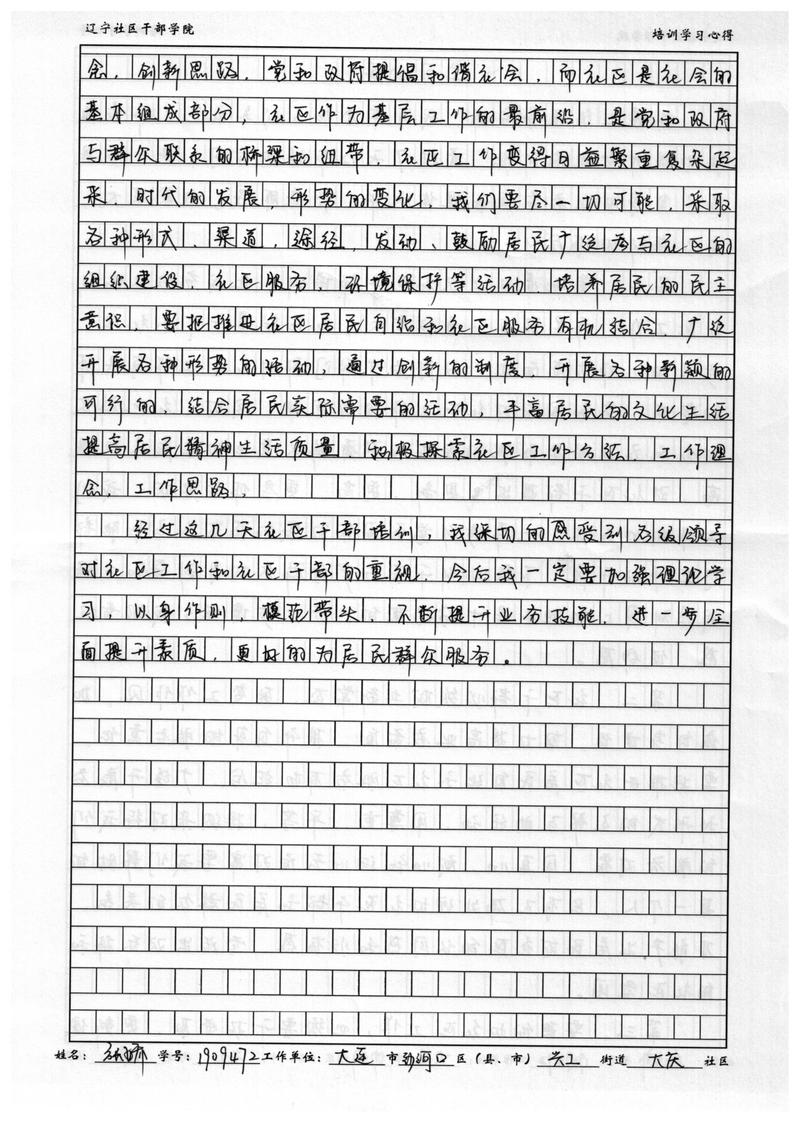 辽宁社区干部学院 培训学习心得
念，创新思路，党和政府提倡和谐社会，而社区是社会的
基本组成部分，社区作为基层工作的最前沿，是党和政府
与群众联系的桥梁和纽带，社区工作变得日益繁重复杂起
来，时代的发展，形势的变化，我们要尽一切可能，采取
各种形式、渠道，途径，发动、鼓励居民广泛参与社区的
组织建设，社区服务，环境保护等活动，培养居民的民主
意识，要把推进社区居民自治和社区服务有机结合，广泛
开展各种形势的活动，通过创新的制度，开展各种新颖的
可行的，结合居民实际需要的活动，丰富居民的文化生活
提高居民精神生活质量，积极探索社区工作方法，工作理
念，工作思路，
经过这几天社区干部培训，我深切的感受到各级领导
对社区工作和社区干部的重视，今后我一定要加强理论学
习，以身作则，模范带头，不断提升业务技能，进一步全
面提升素质，更好的为居民群众服务。
姓名： 学号：1909472 工作单位：大连 市 沙河口 区（县、市） 兴工 街道 大庆 社区